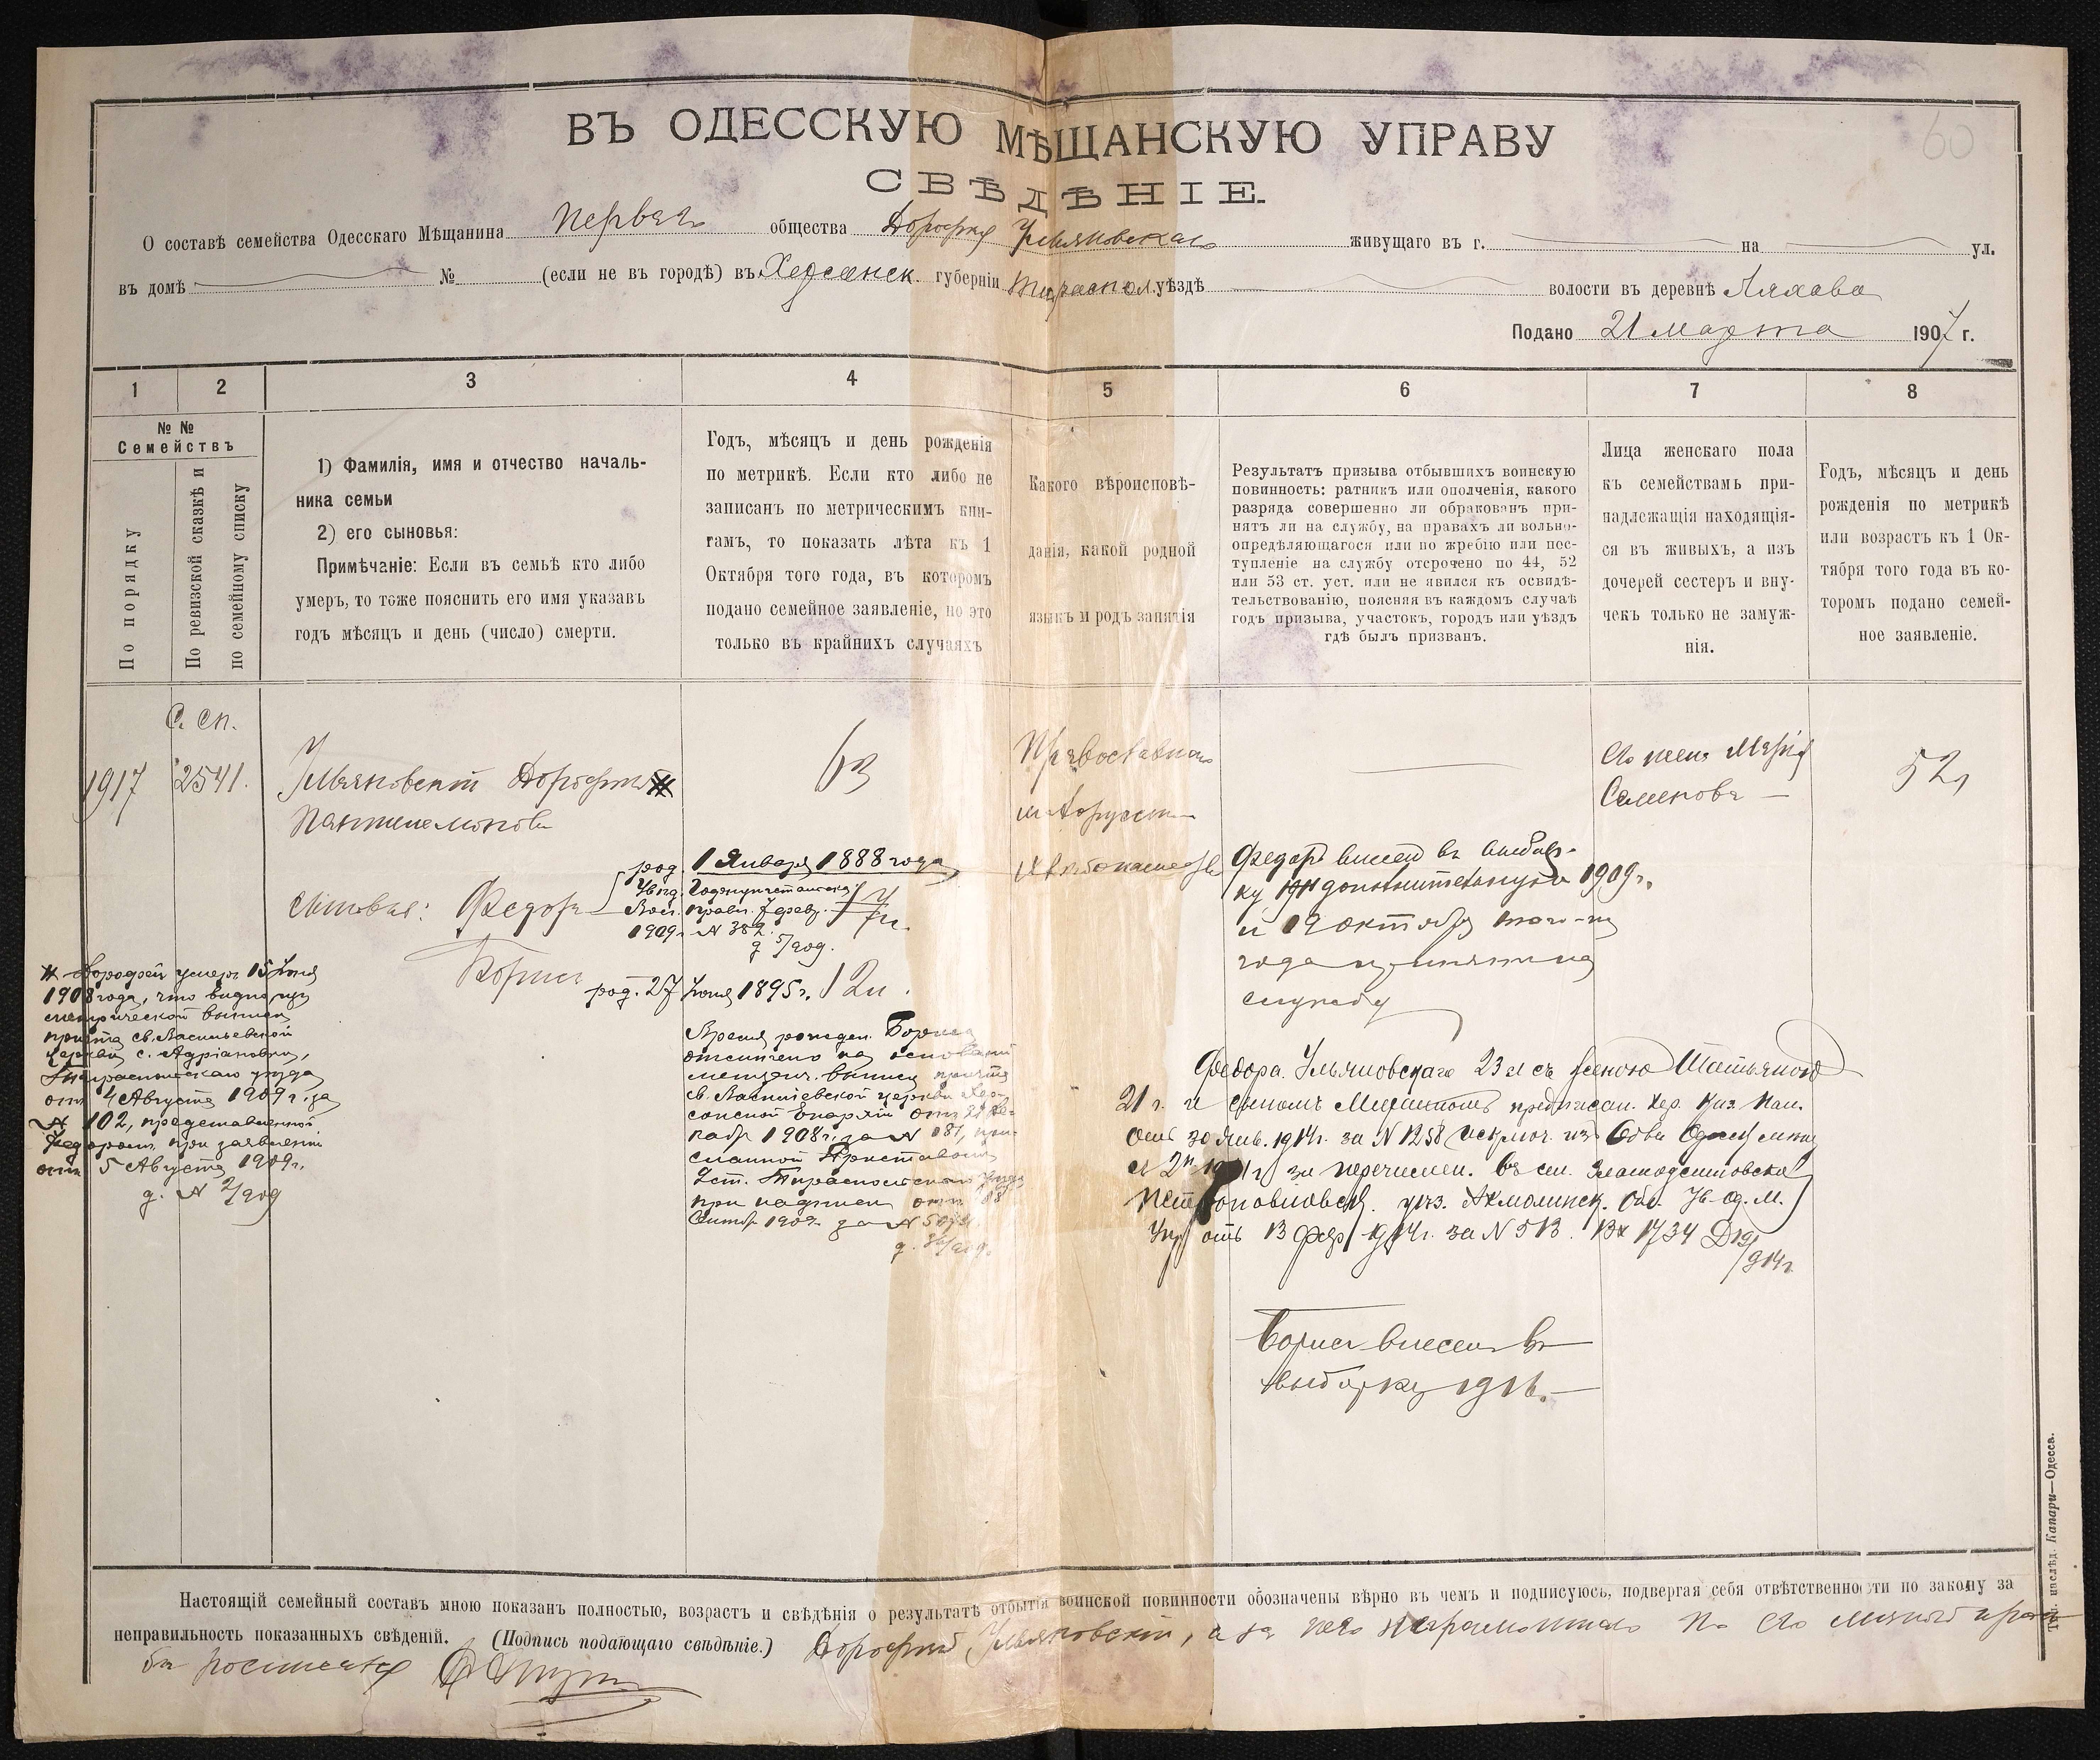 60
ВЪ ОДЕССКУЮ МѢЩАНСКУЮ УПРАВУ
СВѢДѢНІЕ.
О составѣ семейства Одесскаго Мѣщанина Перваго общества Дорофея Ульяновскаго живущаго въ г. на ул.
въ домѣ № (если не въ городѣ) въ Херсонск. губерніи Тираспол. уѣздѣ волости въ деревнѣ Ляхова
Подано 21 Марта 1907 г.
1 2 3 4 5 6 7 8
№ №
Семействъ
По порядку
По ревизской сказкѣ и
по семейному списку
1) Фамилія, имя и отчество началь-
ника семьи
2) его сыновья:
Примѣчаніе: Если въ семьѣ кто либо
умеръ, то тоже пояснить его имя указавъ
годъ мѣсяцъ и день (число) смерти.
Годъ, мѣсяцъ и день рожденія
по метрикѣ. Если кто либо не
записанъ по метрическимъ кни-
гамъ, то показать лѣта къ 1
Октября того года, въ которомъ
подано семейное заявленіе, но это
только въ крайнихъ случаяхъ
Какого вѣроисповѣ-
данія, какой родной
языкъ и родъ занятія
Результатъ призыва отбывшихъ воинскую
повинность: ратникъ или ополченія, какого
разряда совершенно ли обракованъ при-
нятъ ли на службу, на правахъ ли вольно-
опредѣляющагося или по жребію или пос-
тупленіе на службу отсрочено по 44, 52
или 53 ст. уст. или не явился къ освидѣ-
тельствованію, поясняя въ каждомъ случаѣ
годъ призыва, участокъ, городъ или уѣздъ
гдѣ былъ призванъ.
Лица женскаго пола
къ семействамъ при-
надлежащія находящія-
ся въ живыхъ, а изъ
дочерей сестеръ и вну-
чекъ только не замуж-
нія.
Годъ, мѣсяцъ и день
рожденія по метрикѣ
или возрастъ къ 1 Ок-
тября того года въ ко-
торомъ подано семей-
ное заявленіе.
С. сп.
1917 2541.
Ульяновскій Дорофей
Пантелемонов
63
Православнаго
малорусск
хлебопашество
Его жена Марія
Семенова —
52
Сыновья: Федоръ
род. 1 Января 1888 года
1909 г. № 382.
Борисъ
род. 27 Іюня 1895 г. 12 л.
Федоръ внесен въ выбор-
ку дополнительную 1909 г.
и 19 октября того-же
года принятъ на
службу
Дорофей умеръ 15 Іюня
1908 года, что видно изъ
метрической выписи
причта св. Васильевской
церкви с. Адріановки,
Тираспольскаго уезда
отъ 4 Августа 1909 г. за
№ 102, представленной
Федоромъ при заявленіи
отъ 5 Августа 1909 г.
Время рожден. Бориса
отмечено на основаніи
метрич. выписи причта
св. Васильевской церкви Хер-
сонской Епархіи отъ
1908 г. за №
сланной Приставомъ
Тираспольскаго уезда
при надписи отъ
Федора Ульяновскаго 23 л. съ женою Татьяною
21 г. и сыномъ предписан. Хер. Каз. Пал.
отъ 30 Янв. 1914 г. за № 1258 исключ. изъ
за перечислен. въ
Петропавловск. уез. Акмолинск. обл. Ув. Од. М.
Упр. отъ 13 Фев. 1914 г. за № 513. Вх 1734
Борисъ внесенъ въ
выборку 1916. —
Настоящій семейный составъ мною показанъ полностью, возрастъ и свѣдѣнія о результатѣ отбытія воинской повинности обозначены вѣрно въ чемъ и подписуюсь, подвергая себя отвѣтственности по закону за
неправильность показанныхъ свѣдѣній. (Подпись подающаго свѣдѣніе.) Дорофей Ульяновскій, а за него неграмотнаго по его личной прось-
бѣ росписался
Тип. наслѣд. Капари—Одесса.